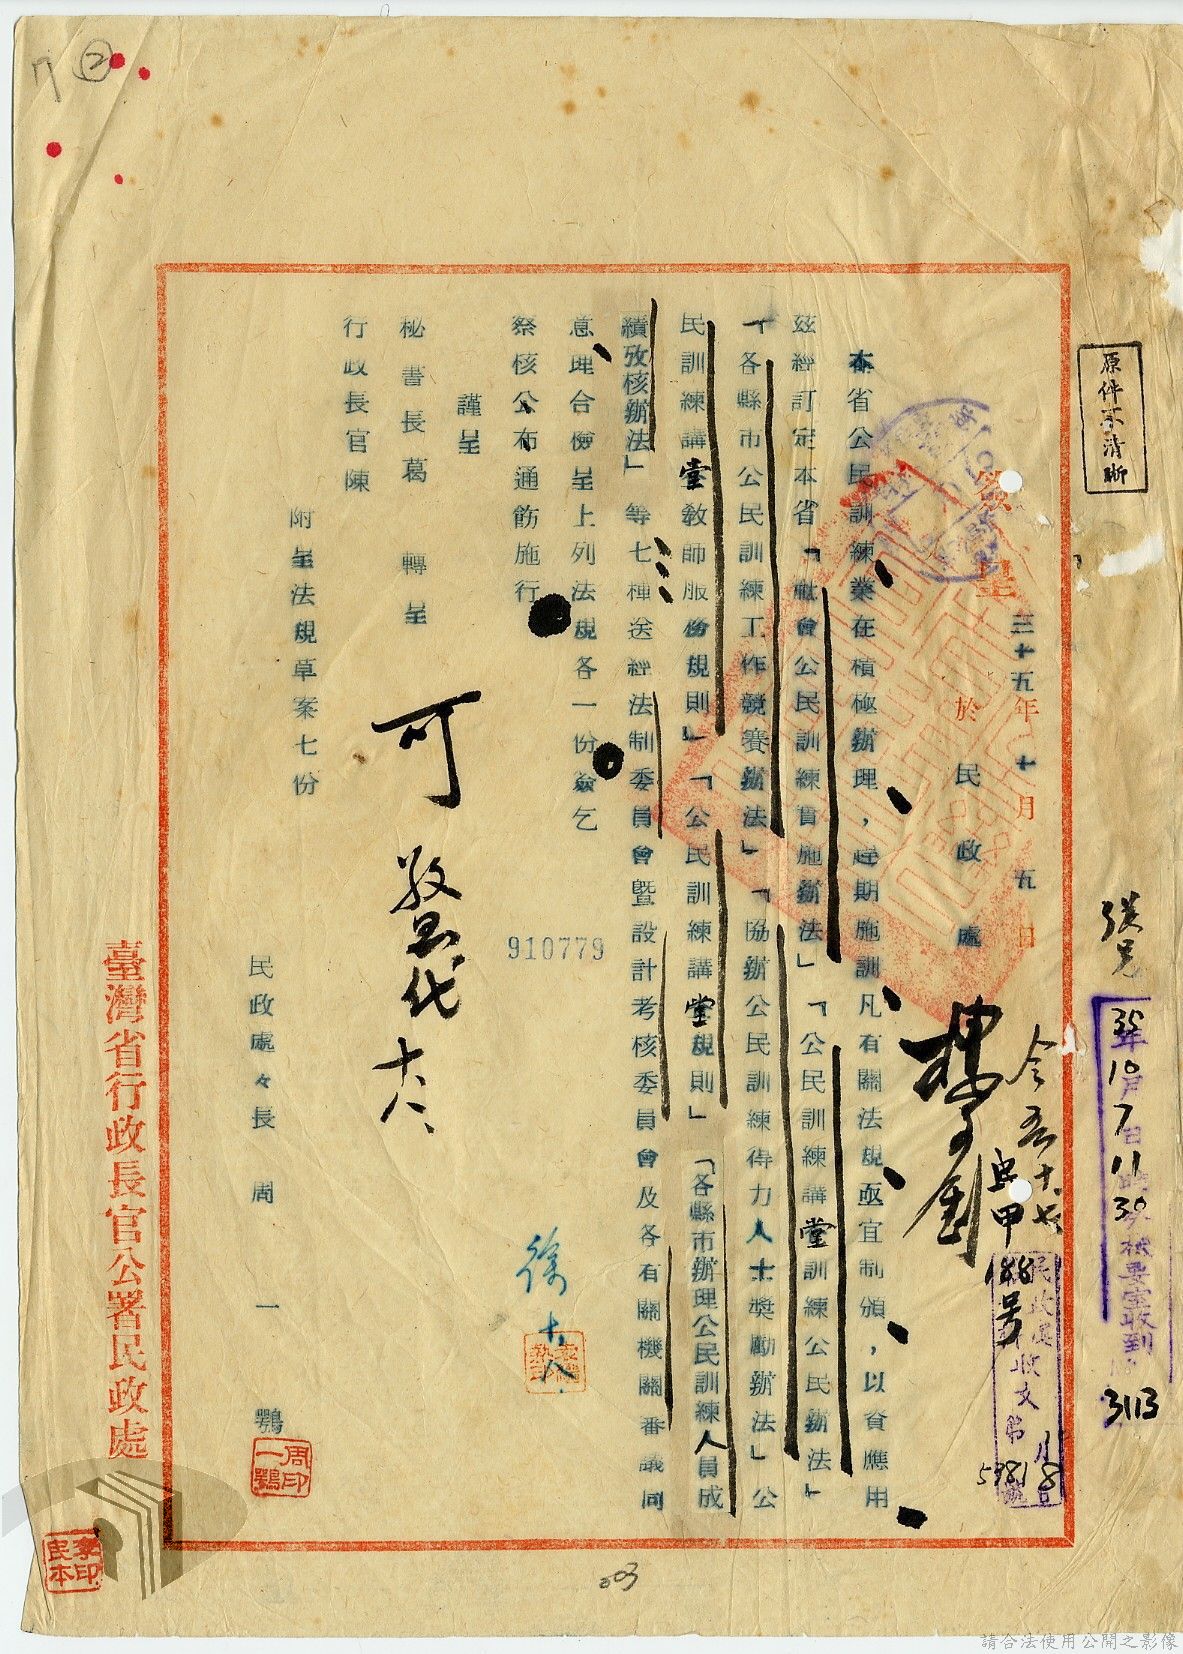 原件不清晰
簽呈
三十五年十月五日
於民政處
本省公民訓練業在積極辦理，訓期施訓凡有關法規亟宜制頒，以資應用
茲經訂定本省「社會公民訓練實施辦法」「公民訓練講堂訓練公民辦法」
「各縣市公民訓練工作競賽辦法」「協辦公民訓練得力人士獎勵辦法」公
民訓練講堂教師服務規則」「公民訓練講堂規則」「各縣市辦理公民訓練人員成
績攷核辦法」等七種送經法制委員會暨設計考核委員會及各有關機關審議同
意理合檢呈上列法規各一份敬乞
察核公布通飭施行
謹呈
秘書長葛 轉呈
行政長官陳
附呈法規草案七份
民政處々長周一鶚
周一鶚印
可
代
十八
徐
十八
910779
臺灣省行政長官公署民政處
李民本印
35年10月7日11時30 機要室收到
3113
民甲
188号
民政處收文第59818號
月8日
7
2
203
請合法使用公開之影像